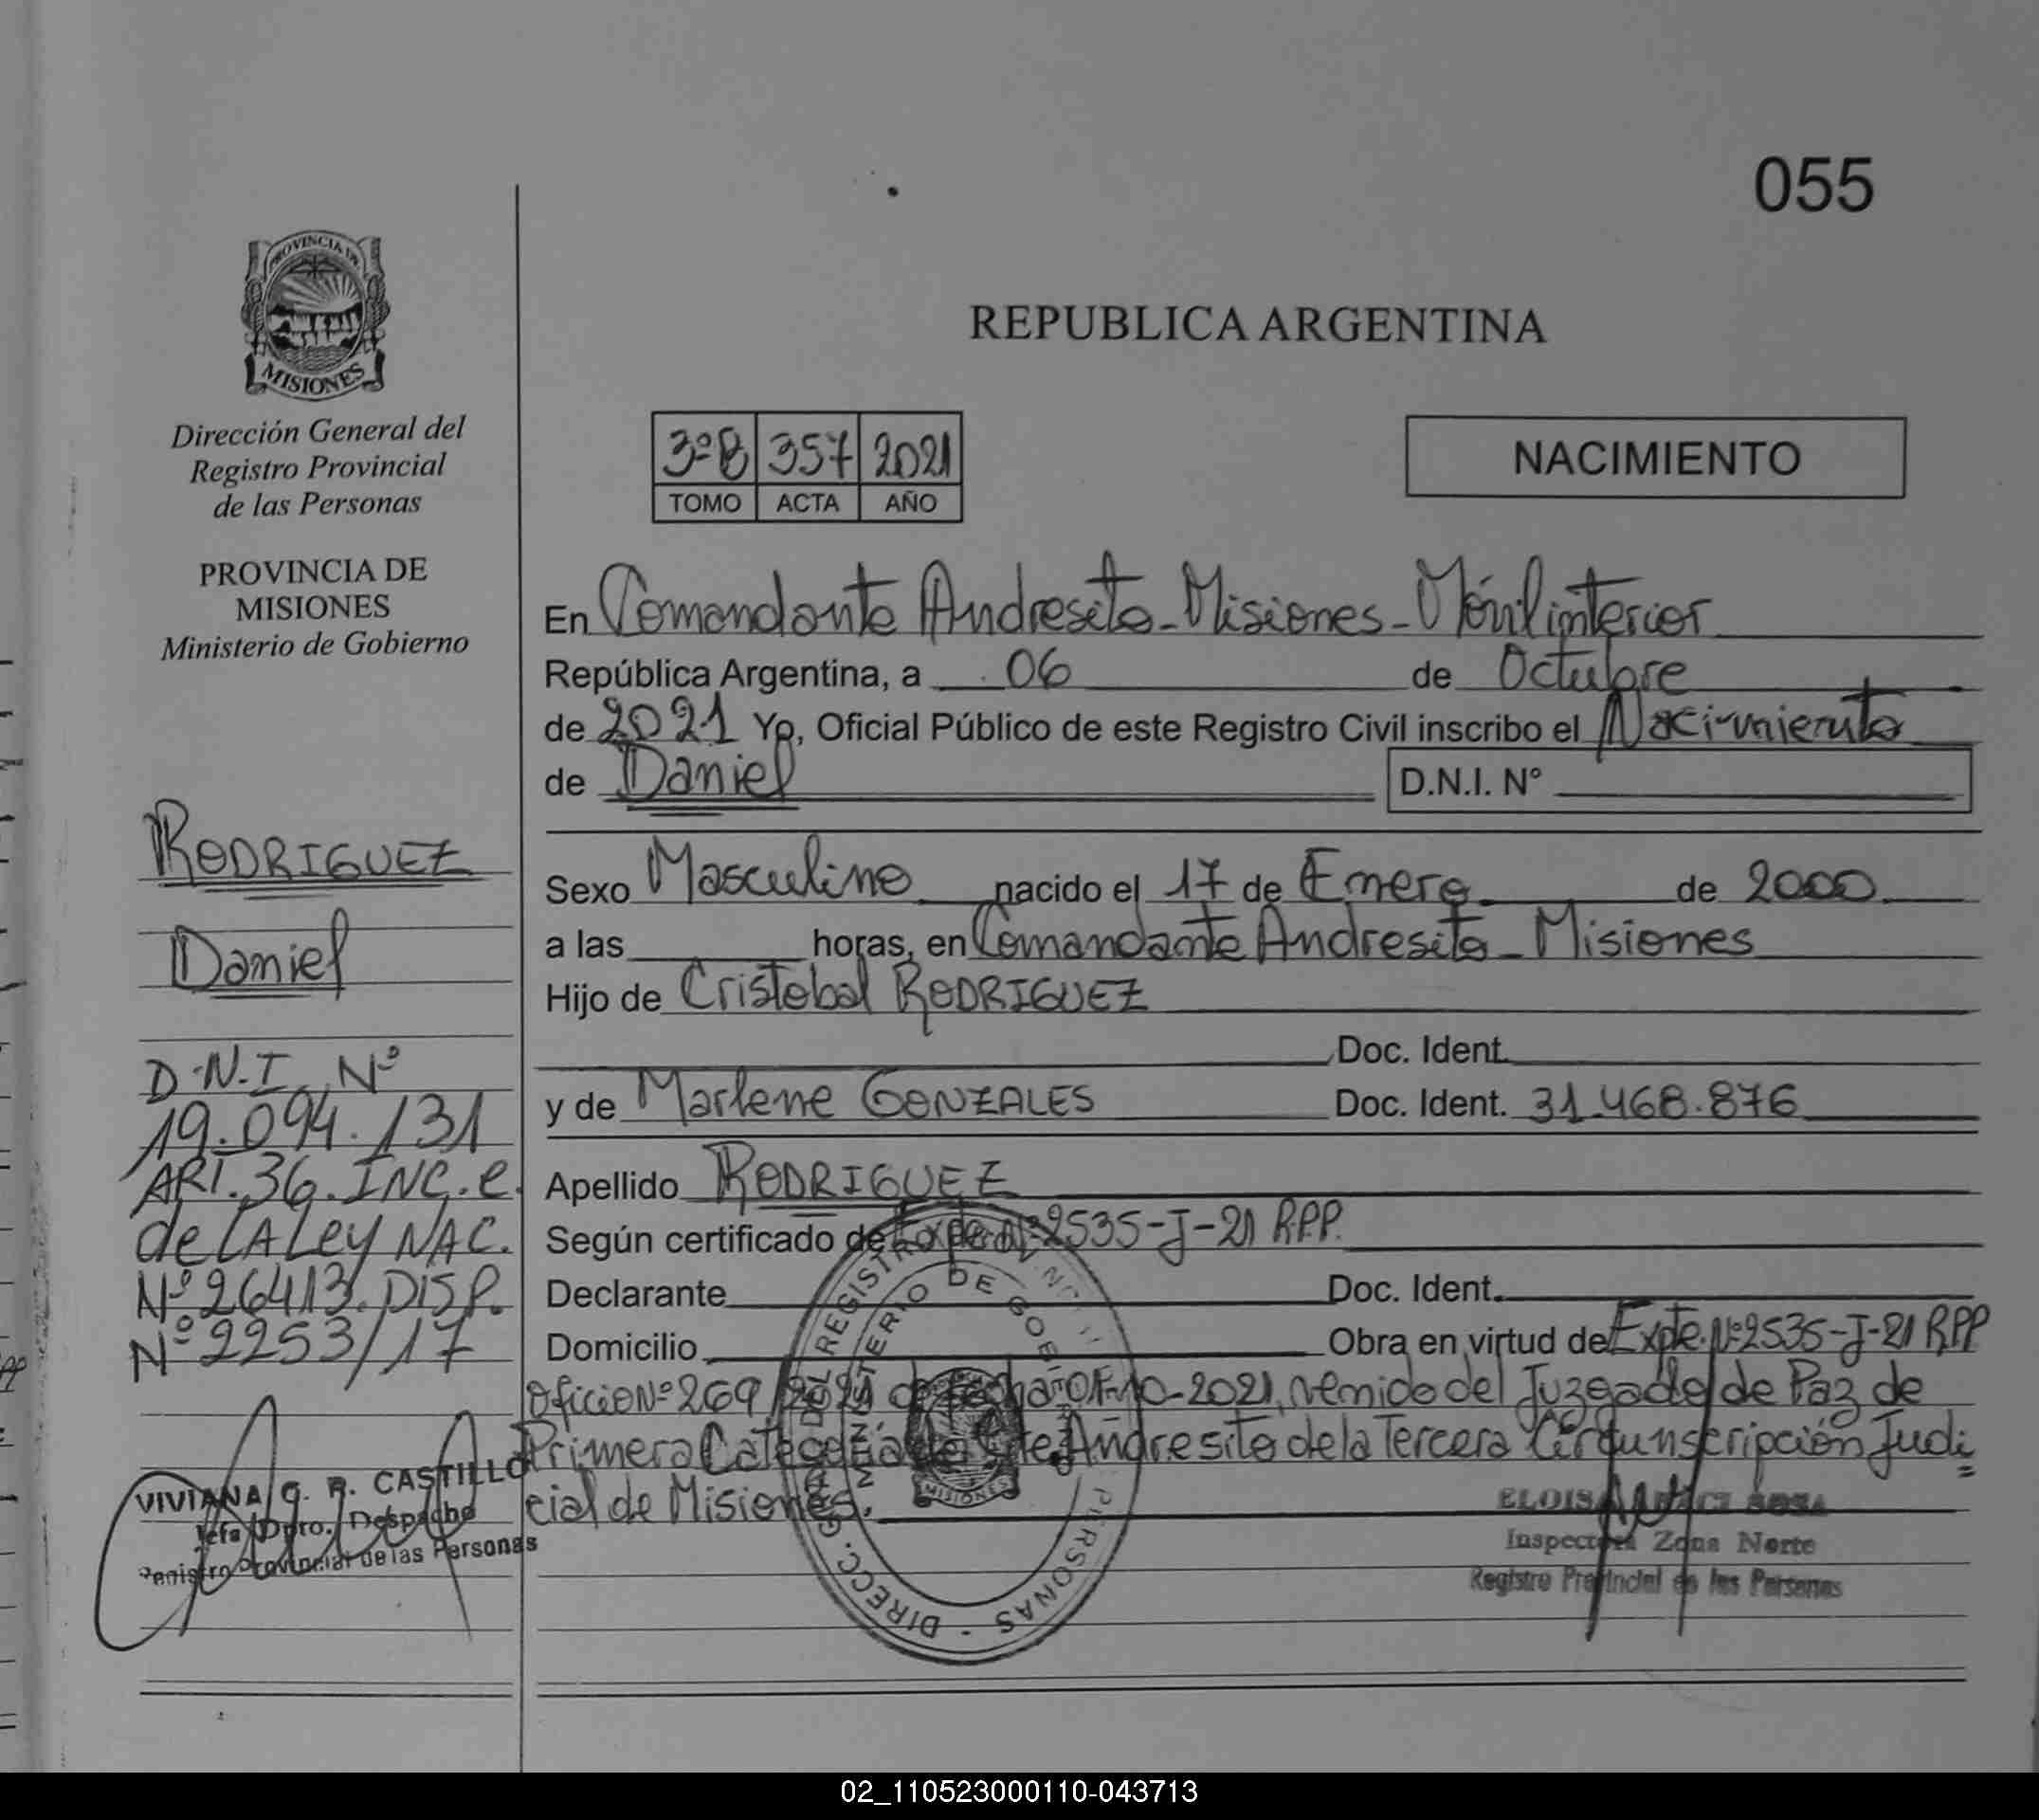 055
PROVINCIA DE
MISIONES
Dirección General del
Registro Provincial
de las Personas
PROVINCIA DE
MISIONES
Ministerio de Gobierno
RODRIGUEZ
Daniel
D.N.I. Nº
19.094.131
ART. 36. INC. e.
de LA Ley NAC.
Nº 26413. DISP.
Nº 2253/17
VIVIANA G. R. CASTILLO
Jefa Dpto. Despacho
Registro Provincial de las Personas
REPUBLICA ARGENTINA
3ºB 357 2021
TOMO ACTA AÑO
NACIMIENTO
En Comandante Andresito - Misiones - Móvil interior
República Argentina, a 06 de Octubre
de 2021 Yo, Oficial Público de este Registro Civil inscribo el Nacimiento
de Daniel D.N.I. Nº
Sexo Masculino nacido el 17 de Enero de 2000
a las horas, en Comandante Andresito - Misiones
Hijo de Cristobal RODRIGUEZ
Doc. Ident.
y de Marlene GONZALES Doc. Ident. 31.468.876
Apellido RODRIGUEZ
Según certificado de Expte. Nº 2535-J-21 R.P.P.
Declarante Doc. Ident.
Domicilio Obra en virtud de Expte. Nº 2535-J-21 RPP
Oficio Nº 269/2021 de fecha -10-2021, del Juzgado de Paz de
Primera Categoria de Cte. Andresito de la Tercera Circunscripción Judi
cial de Misiones.
DIRECC. REGISTR PERSONAS
MINISTERIO DE GOB
MISIONES
ELOISA SOSA
Inspectora Zona Norte
Registro Provincial de las Personas
02_110523000110-043713